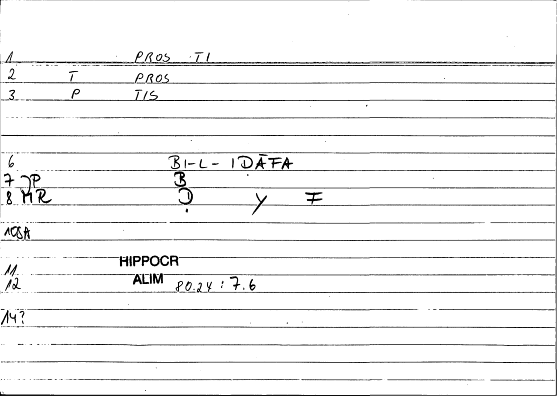 1 PROS TI
2 T PROS
3 P TIS
6 BI-L-IḌĀFA
7 JP B
8 MR D y F
10SA
11 HIPPOCR
12 ALIM 80.24 : 7.6
14?